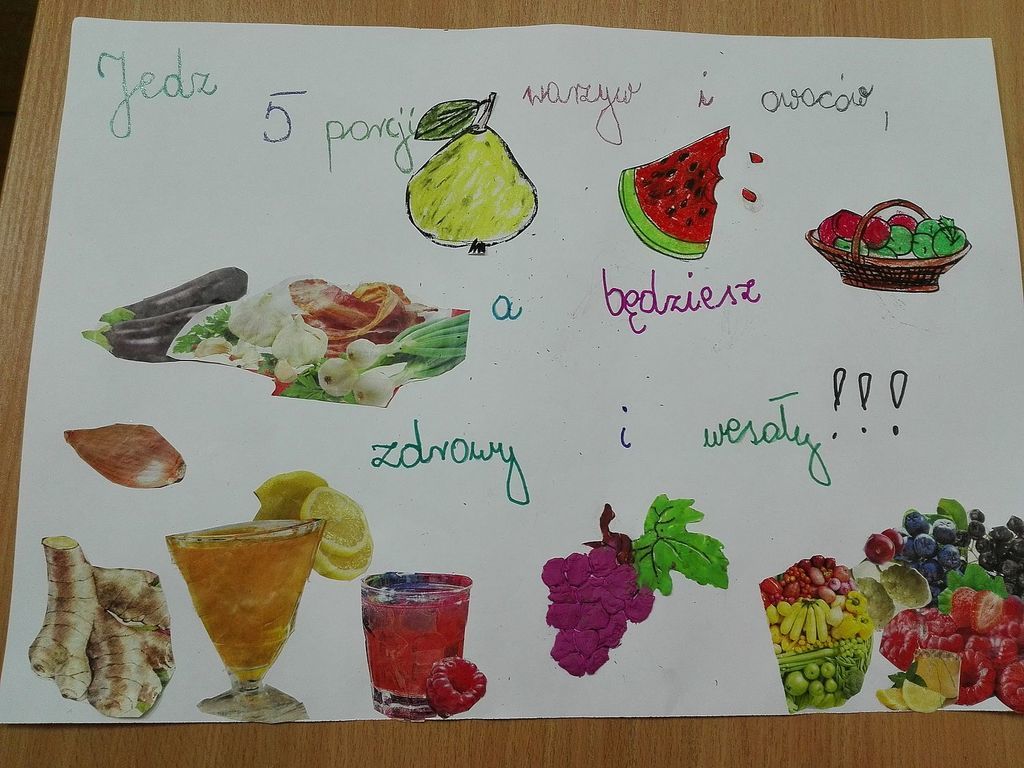 Jedz 5 porcji warzyw i owoców,
a będziesz
zdrowy i wesoły!!!